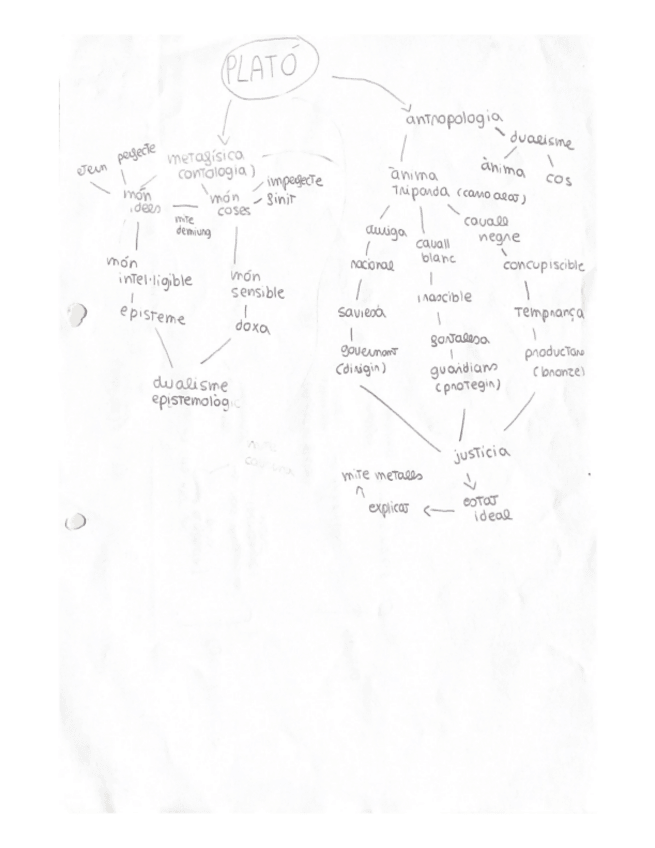 PLATÓ
antropologia
dualisme
ànima
cos
etern
perfecte
metafísica
(ontologia)
món
idees
mite
demiürg
món
coses
imperfecte
finit
ànima
tripartida (carro alat)
auriga
cavall
blanc
cavall
negre
món
intel·ligible
món
sensible
racional
irascible
concupiscible
episteme
doxa
saviesa
fortalesa
Temprança
governant
(dirigir)
guardians
(protegir)
productors
(bronze)
dualisme
epistemològic
justícia
mite metalls
explicar
estat
ideal